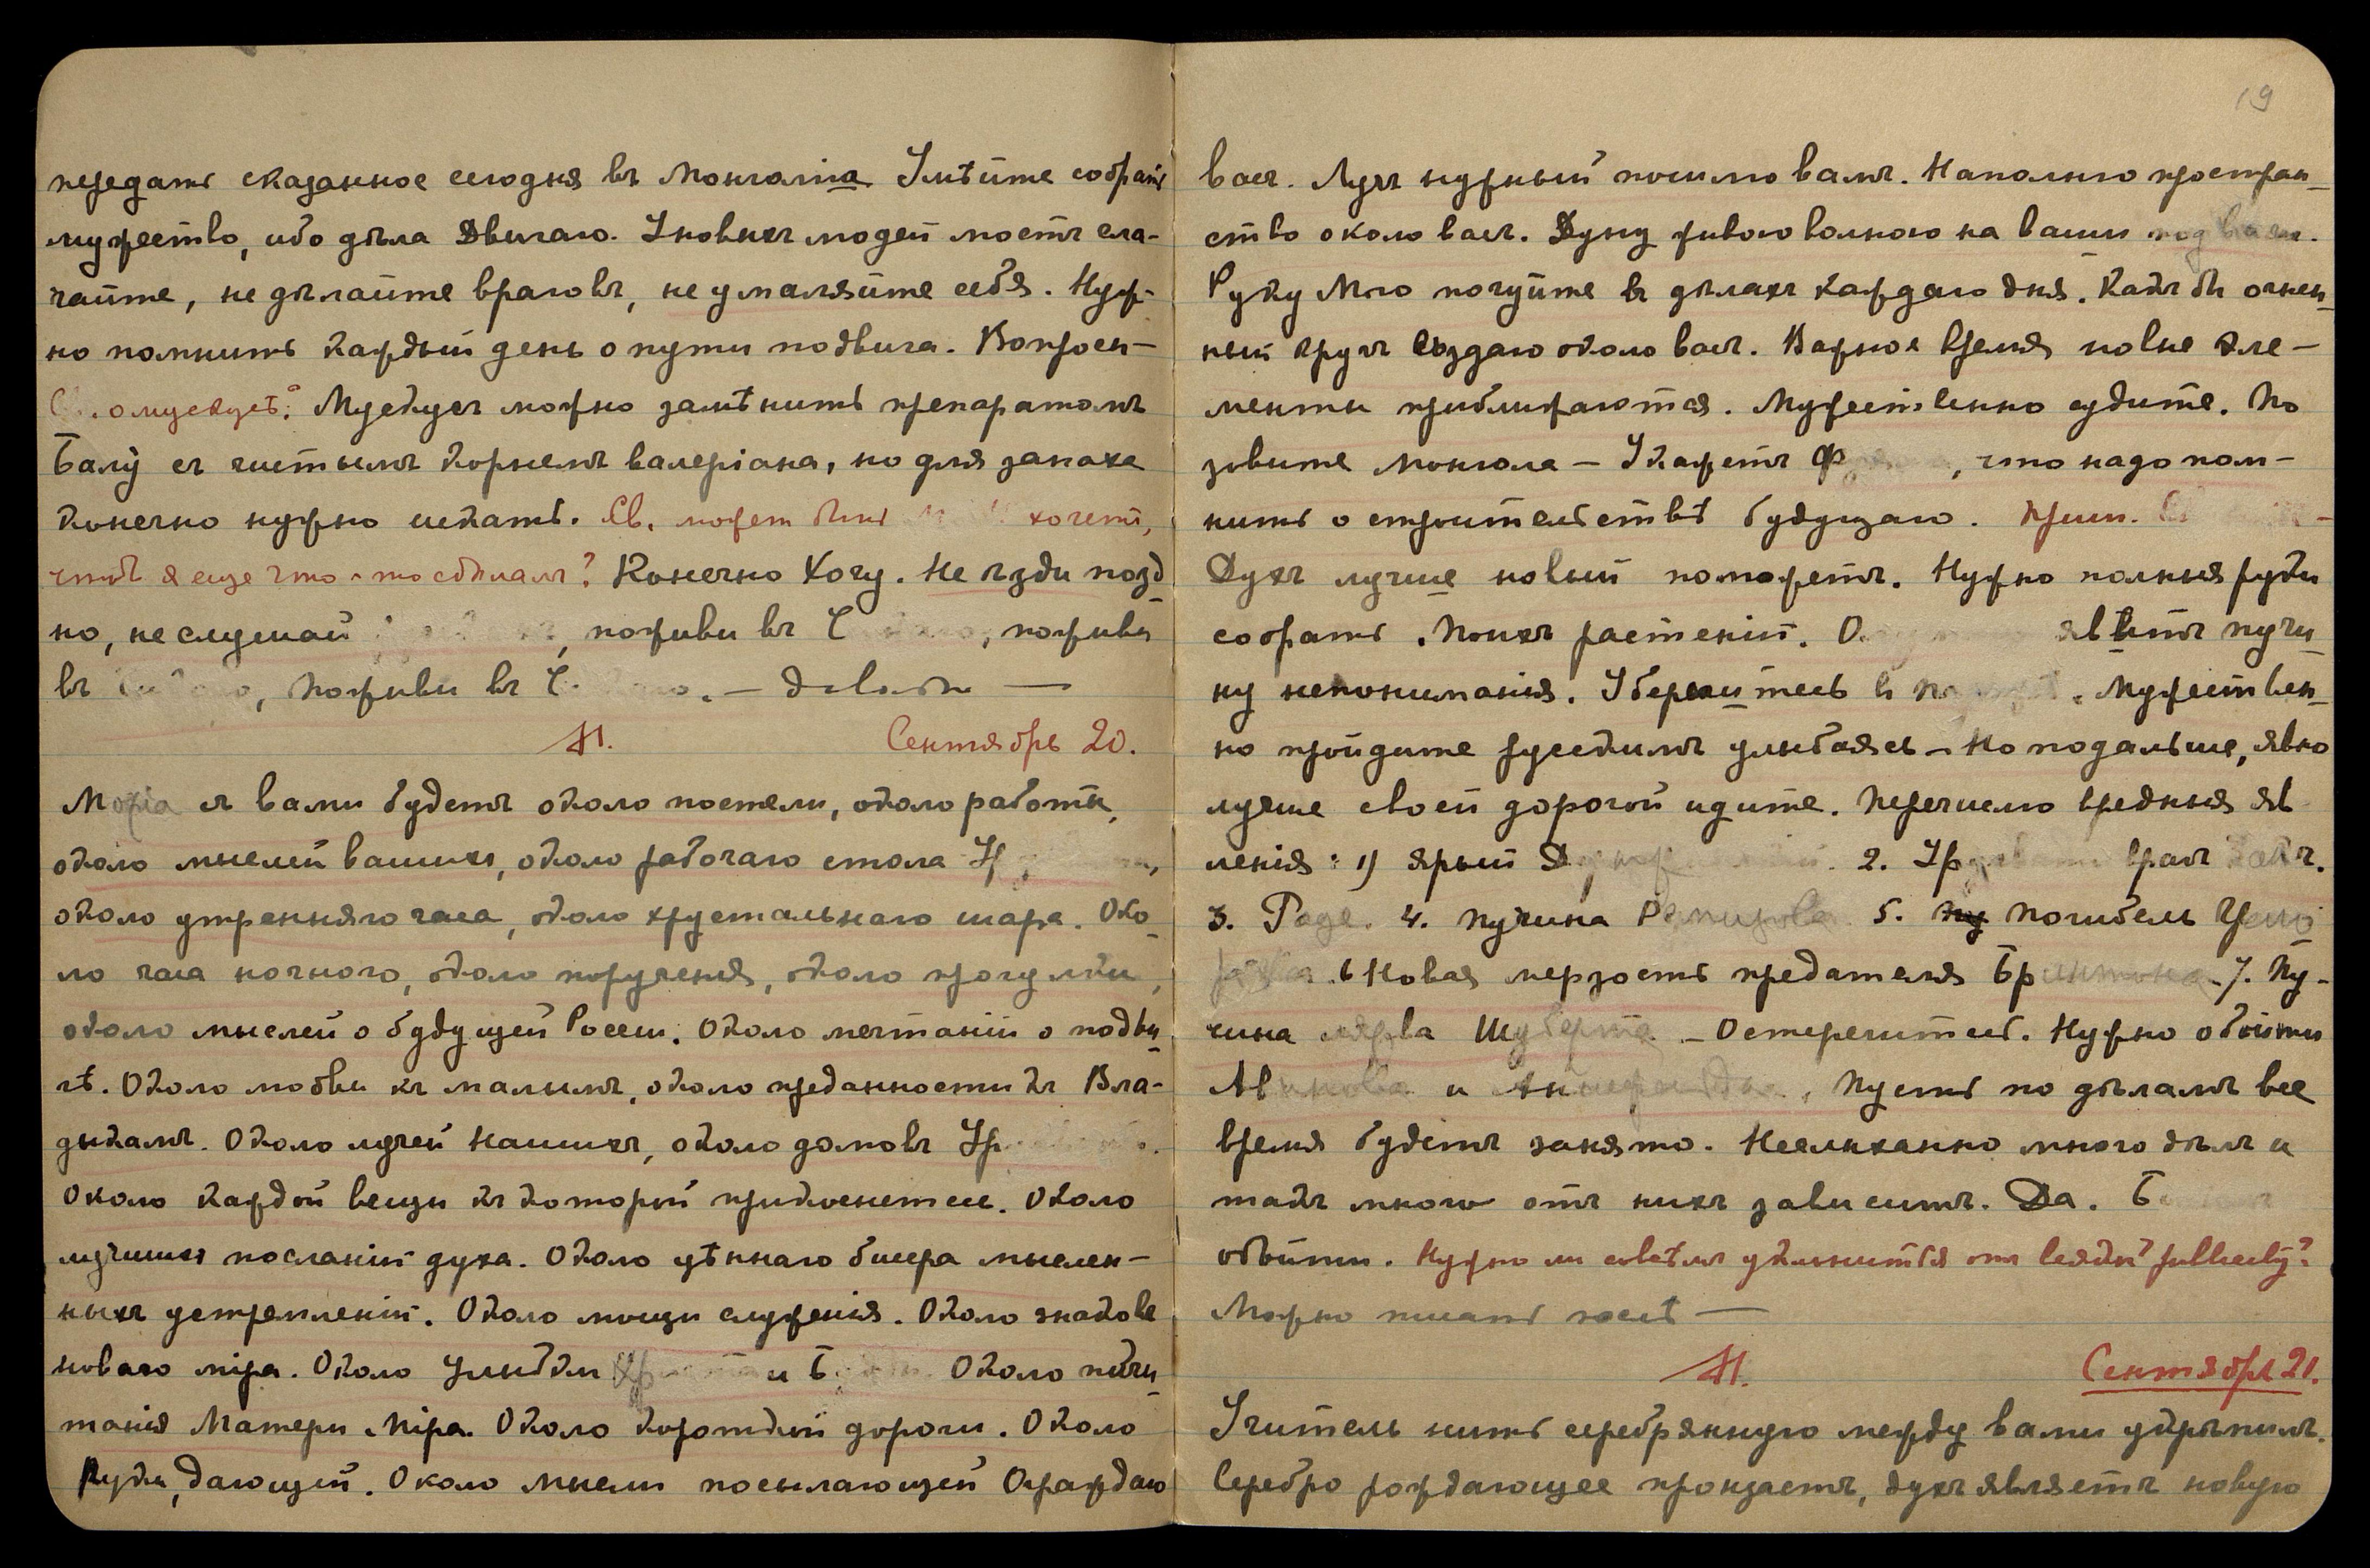 передать сказанное сегодня въ Монголіи. Умѣйте собрать
мужество, ибо дѣла Двигаю. У новыхъ людей мостъ сла-
гайте, не дѣлайте враговъ, не умаляйте себя. Нуж-
но помнить каждый день о пути подвига. Вопросы —
о мускусѣ: Мускусъ можно замѣнить препаратомъ
Балю съ чистымъ корнемъ валеріана, но для запаха
конечно нужно искать. Св. можетъ быть хочетъ,
чтобъ я еще что-то сдѣлалъ? Конечно Хочу. Не ѣзди позд
но, не слушай , поживи въ , поживи
въ , Поживи въ . — довольно —
М. Сентябрь 20.
Моріа съ вами будетъ около постели, около работы,
около мыслей вашихъ, около рабочаго стола
около утренняго часа, около хрустальнаго шара. Око-
ло часа ночного, около порученія, около прогулки,
около мыслей о будущей Россіи. Около мечтаній о подви-
гѣ. Около любви къ малымъ, около преданности къ Вла-
дыкамъ. Около лучей Нашихъ, около домовъ
Около каждой вещи къ которой прикоснетесь. Около
лучшихъ посланій духа. Около цѣннаго бисера мыслен-
ныхъ устремленій. Около мощи служенія. Около знаковъ
новаго міра. Около улыбки Христа и Около почи-
танія Матери Міра. Около короткой дороги. Около
Руки, дающей. Около мысли посылающей Ограждаю
19
васъ. Лучъ нужный посылаю вамъ. Наполняю простран-
ство около васъ. Дуну живою волною на ваши
Руку Мою почуйте въ дѣлахъ каждаго дня. Какъ бы огнен-
ный кругъ Создаю около васъ. Важное время новые эле-
менты приближаются. Мужественно судите. По
зовите монгола — Укажетъ , что надо пом-
нить о строительствѣ будущаго. Прим.
Духъ лучше новый поможетъ. Нужно полныя руки
собрать. Поискъ растеній. явитъ пучи-
ну непониманія. Уберегитесь въ . Мужествен-
но пройдите русскимъ улыбаясь — Но подальше, явно
лучше своей дорогой идите. Перечислю вредныя яв
ленія: 1) ярый 2. врагъ
3. 4. Пучина Ремизова 5. Погибель
6 Новая мерзость предателя Бринтона. 7. Пу-
чина Шуберта — Остерегитесь. Нужно обойти
и Пусть по дѣламъ все
время будетъ занято. Неслыханно много дѣлъ и
такъ много отъ нихъ зависитъ. Да.
обойти. Нужно ли совсѣмъ уклониться отъ всякой publicity?
Можно писать послѣ —
М. Сентябрь 21.
Учитель нить серебрянную между вами укрѣпилъ.
Серебро рождающее пронзаетъ, духъ являетъ новую